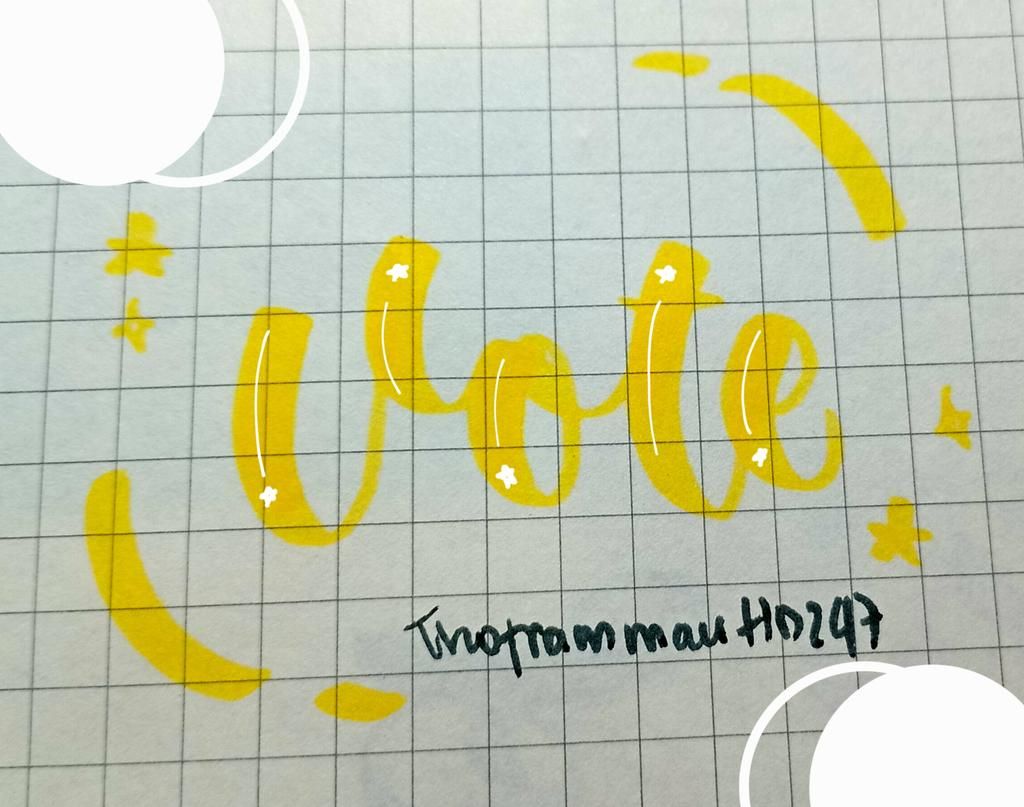 Vote
ThoframmauHD247